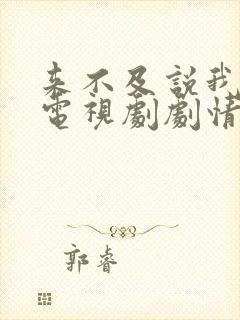 來不及說我
電視劇劇情
郭睿